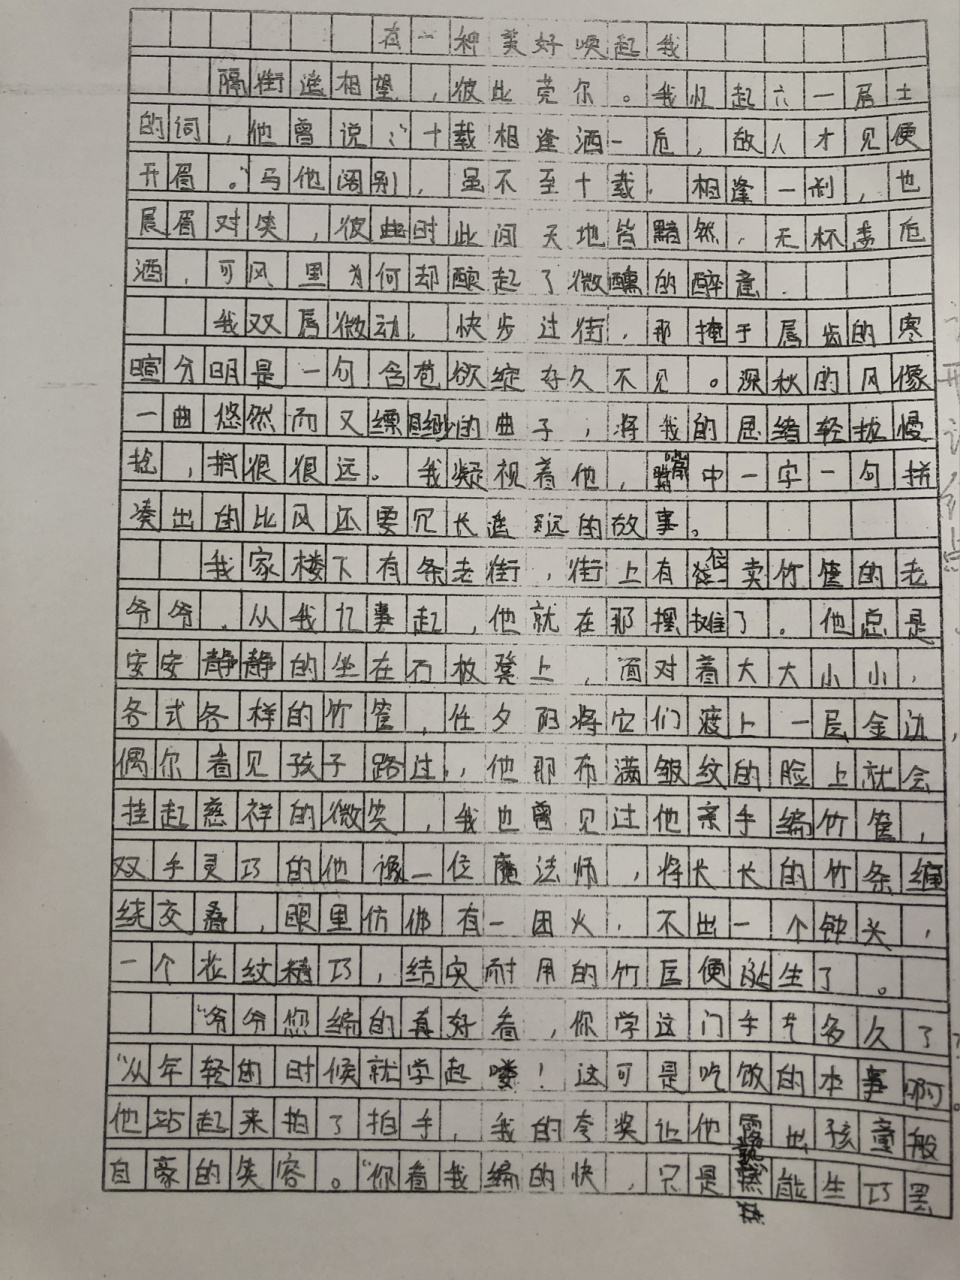 有一种美好唤起我
隔街遥相望，彼此莞尔。我忆起六一居士
的词，他曾说："十载相逢酒一卮，故人才见便
开眉。"与他阔别，虽不至十载，相逢一刹，也
展眉对笑，彼时此间天地皆黯然，无杯盏卮
酒，可风里为何却酿起了微醺的醉意。
我双唇微动，快步过街，那掩于唇齿的寒
暄分明是一句含苞欲绽好久不见。深秋的风像
一曲悠然而又缥缈的曲子，将我的思绪轻拢慢
捻，捎很很远。我凝视着他，嘴中一字一句拼
凑出的比风还要冗长遥远的故事。
我家楼下有条老街，街上有位卖竹筐的老
爷爷，从我忆事起，他就在那摆摊了。他总是
安安静静的坐在石板凳上，面对着大大小小，
各式各样的竹筐，任夕阳将它们渡上一层金边，
偶尔看见孩子路过，他那布满皱纹的脸上就会
挂起慈祥的微笑，我也曾见过他亲手编竹筐，
双手灵巧的他像一位魔法师，将长长的竹条缠
绕交叠，眼里仿佛有一团火，不出一个钟头，
一个花纹精巧，结实耐用的竹匡便诞生了。
"爷爷您编的真好看，你学这门手艺多久了？
"从年轻的时候就学起喽！这可是吃饭的本事啊。
他站起来拍了拍手，我的夸奖让他露出孩童般
自豪的笑容。"你看我编的快，只是熟能生巧罢